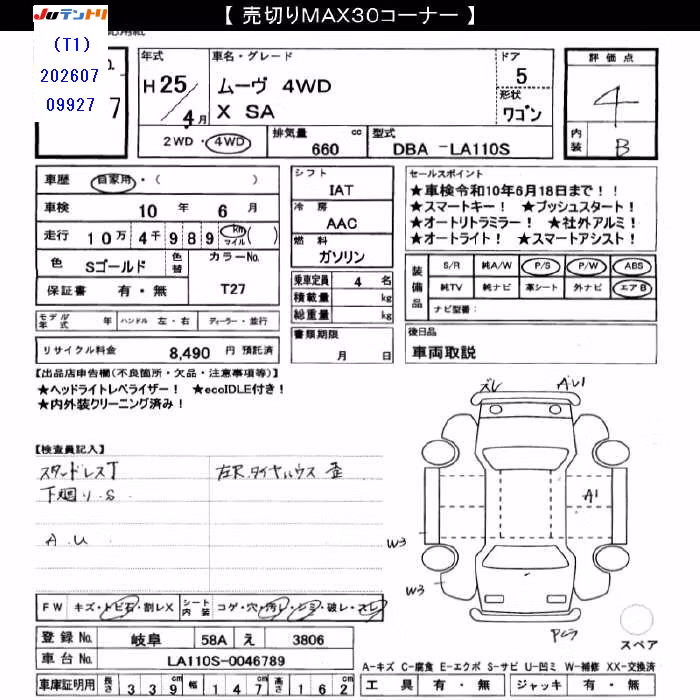 JUテントリ
【 売切りMAX30コーナー 】
(T1)
202607
09927
7
年式
H 25/4月
車名・グレード
ムーヴ 4WD
X SA
ドア
5
形状
ワゴン
評価点
4
内装
B
2WD・4WD
排気量
660 cc
型式
DBA -LA110S
車歴 自家用・( )
車検 10 年 6 月
走行 10万 4千 9 8 9 km マイル ( )
色 Sゴールド 色替
カラーNo.
T27
保証書 有・無
モデル年式 年 ハンドル 左・右 ディーラー・並行
リサイクル料金 8,490 円 預託済
シフト
IAT
冷房
AAC
燃料
ガソリン
乗車定員 4 名
積載量 kg
総重量 kg
書類期限
月 日
セールスポイント
★車検令和10年6月18日まで!!
★スマートキー! ★プッシュスタート!
★オートリトラミラー! ★社外アルミ!
★オートライト! ★スマートアシスト!
装備品
S/R 純A/W P/S P/W ABS
純TV 純ナビ 革シート 外ナビ エアB
ナビ型番:
後日品
車両取説
【出品店申告欄(不良箇所・欠品・注意事項等)】
★ヘッドライトレベライザー! ★ecoIDLE付き!
★内外装クリーニング済み!
【検査員記入】
スタッドレスT
下廻り.S
A.U
左R.タイヤハウス 歪
ズレ
A1
A1
W3
W3
スペア
FW キズ・トビ石・割レX シート内装 コゲ・穴・汚レ・シミ・破レ・スレ
登録No. 岐阜 58A え 3806
車台No. LA110S-0046789
車庫証明用 長さ 3 3 9 cm 幅 1 4 7 cm 高さ 1 6 2 cm
A-キズ C-腐食 E-エクボ S-サビ U-凹ミ W-補修 XX-交換済
工具 有・無 ジャッキ 有・無